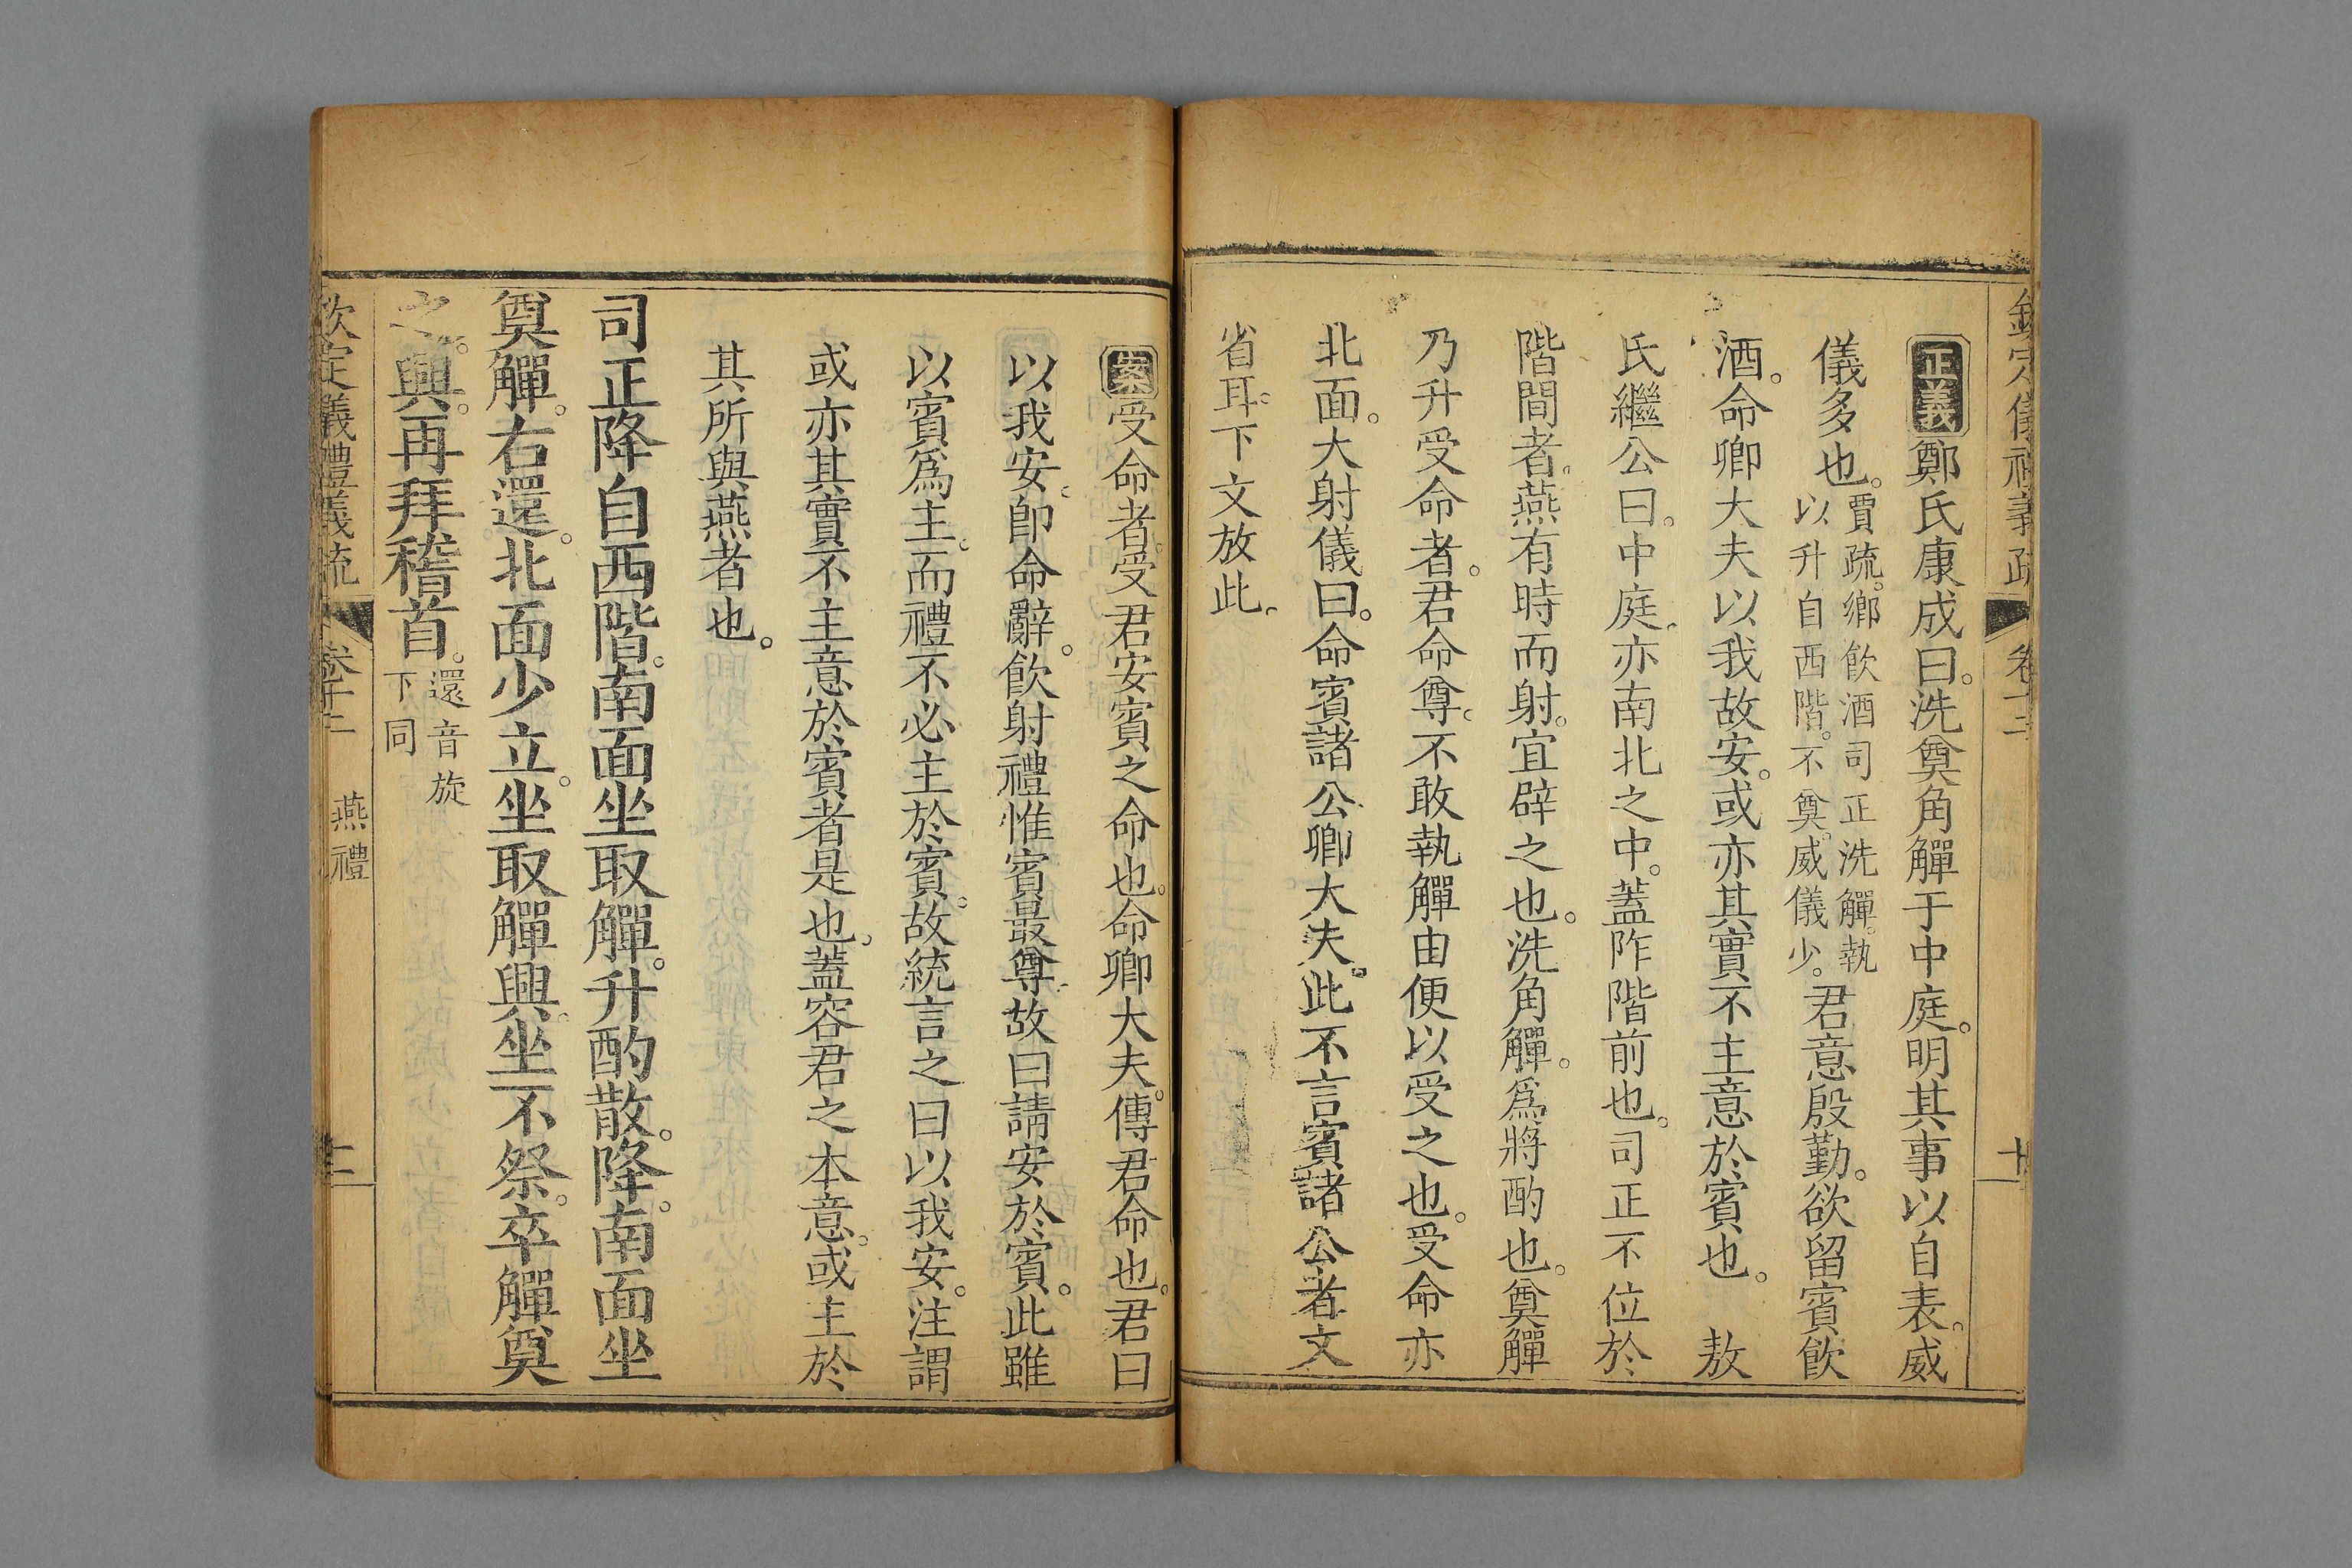 欽定儀禮義疏 卷十二
正義鄭氏康成曰。洗奠角觶于中庭。明其事以自表。威
儀多也。賈疏。鄉飲酒司正洗觶。執以升自西階。不奠。威儀少。君意殷勤。欲留賓飲
酒。命卿大夫以我故安。或亦其實不主意於賓也。 敖
氏繼公曰。中庭。亦南北之中。蓋阼階前也。司正不位於
階間者。燕有時而射。宜辟之也。洗角觶。爲將酌也。奠觶
乃升受命者。君命尊。不敢執觶由便以受之也。受命亦
北面。大射儀曰。命賓諸公卿大夫。此不言賓諸公者文
省耳。下文放此。
案受命者。受君安賓之命也。命卿大夫。傳君命也。君曰
以我安。卽命辭。飲射禮惟賓最尊。故曰請安於賓。此雖
以賓爲主。而禮不必主於賓。故統言之曰以我安。注謂
或亦其實不主意於賓者是也。蓋容君之本意。或主於
其所與燕者也。
司正降自西階。南面坐取觶。升酌散。降。南面坐
奠觶。右還。北面少立。坐取觶興。坐不祭。卒觶奠
之。興。再拜稽首。還音旋下同
欽定儀禮義疏 卷十二 燕禮